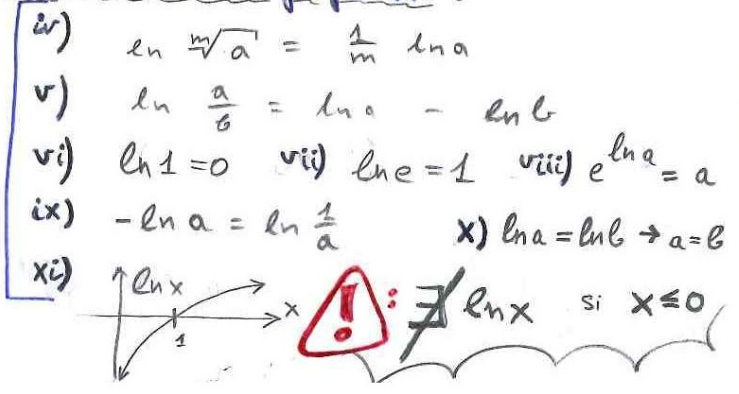 iv) ln ᵐ√a = 1/m ln a
v) ln a/b = ln a - ln b
vi) ln 1 = 0 vii) ln e = 1 viii) e^ln a = a
ix) -ln a = ln 1/a x) ln a = ln b → a = b
xi) ln x x 1 ! : ∄ ln x si x ≤ 0